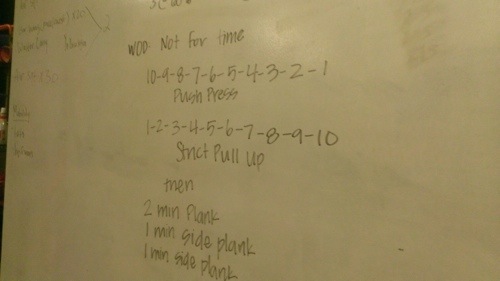 WOD: Not for time
10-9-8-7-6-5-4-3-2-1
Push Press
1-2-3-4-5-6-7-8-9-10
Strict Pull Up
then
2 min Plank
1 min side plank
1 min side plank